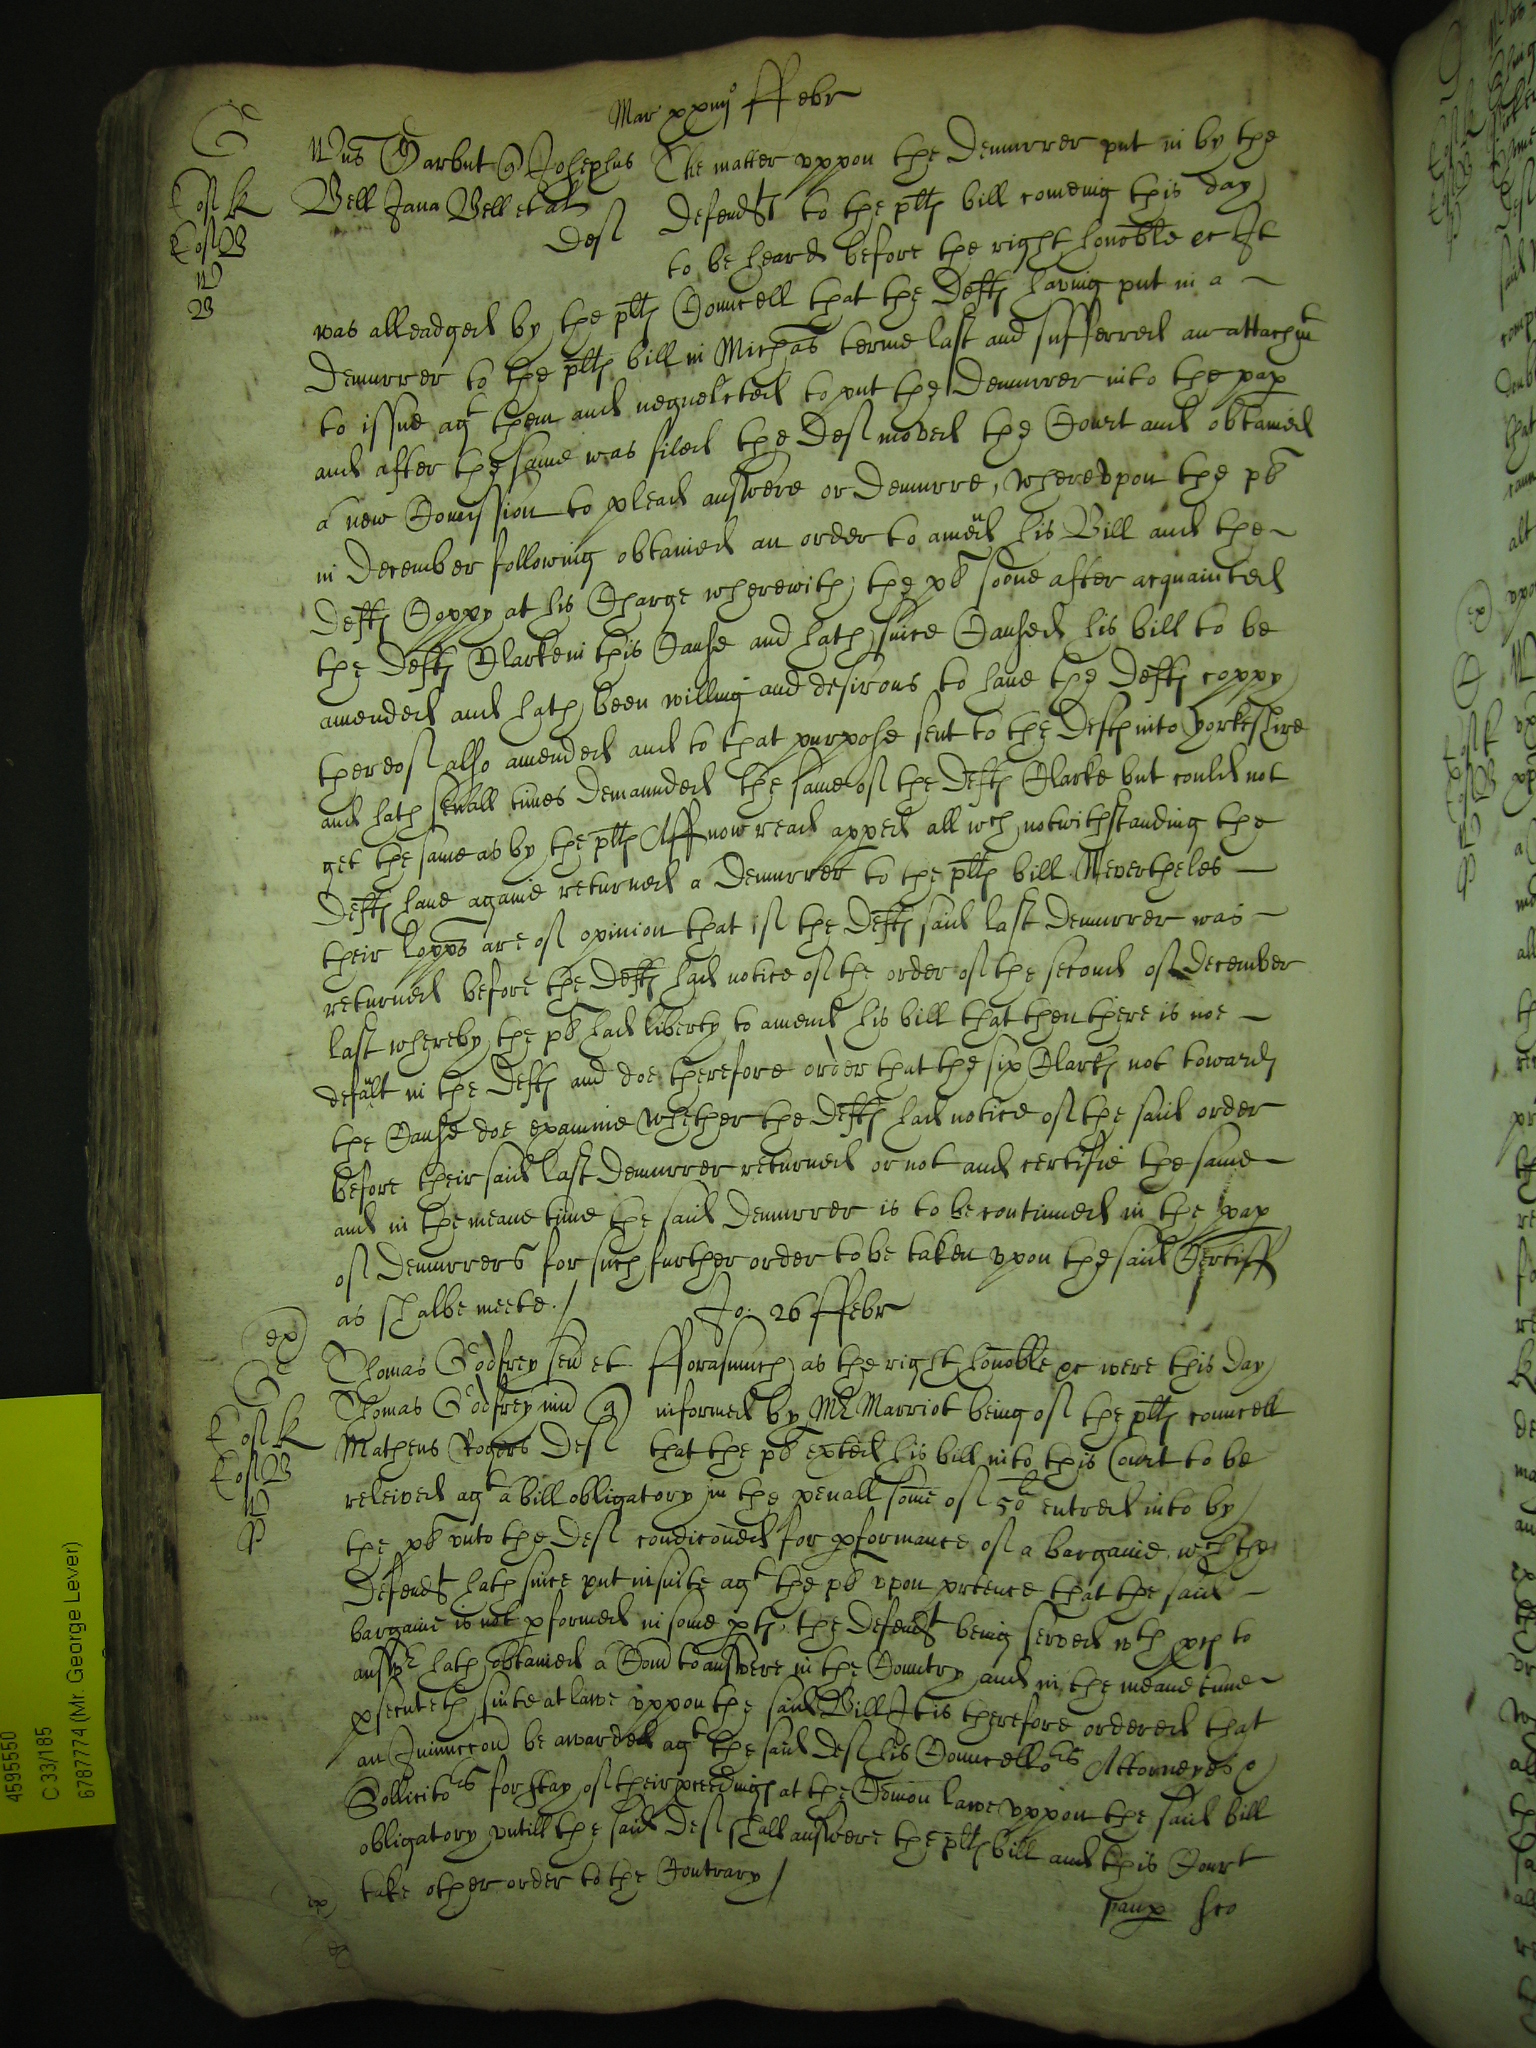 Mar xxiiij° ffebr
Wus Garbut q Josephus The matter vppon the Demurrer put in by the
Bell Jana Bell et al defendts to the plts bill comeing this day
Def to be heard before the right honoble etc It
was alleadged by the plts Councell that the Defts having put in a
Demurrer to the plts bill in Michas terme last and sufferred an attachmt
to issue agt them and neguelcted to put the Demurrer into the pap
and after the same was filed the Def moved the Court and obtained
a new Comission to plead answere or Demurre, Wherevpon the pl
in December following obtained an order to amend his Bill and the
Defts Coppy at his Charge wherewith the pl soone after acquainted
the Defts Clarke in this Cause and hath since Caused his bill to be
amended and hath been willing and desirous to have the Defts coppy
thereof also amended and to that purpose sent to the Defts into Yorkeshire
and hath sevall times Demaunded the same of the Defts Clarke but could not
get the same as by the plts Aff now read apped all wch notwithstanding the
Defts have againe returned a Demurrer to the plts bill Neverthelles
their lopps are of opinion that if the Defts said last Demurrer was
returned before the Defts had notice of the order of the second of December
last whereby the pl had liberty to amend his bill that then there is noe
default in the Defts and doe therefore order that the six Clarks not towards
the Cause doe examine Whether the Defts had notice of the said order
before their said last Demurrer returned or not and certifie the same
and in the meane time the said Demurrer is to be continued in the pap
of Demurrers for such further order to be taken vpon the said Certiff
as shalbe meete./ Jo: 26 ffebr
Thomas Godfrey sen et fforasmuch as the right honoble etc were this day
Thomas Godfrey iun q informed by Mr Marriot being of the plts councell
Matheus Rogers Def that the pl exhted his bill into this Court to be
releived agt a bill obligatory in the penall some of 50l entred into by
the pl vnto the Def condiconed for pformance of a bargaine wch the
Defendt hath since put in suite agt the pl vpon prtence that the said
bargaine is not pformed in some pts, the Defendt being served wth pces to
answere hath obtained a Com to answere in the Country and in the meane time
psecuteth suite at lawe vppon the said Bill It is therefore ordered that
an Iniunccon be awarded agt the said Def his Councellors Attorneyes &
Sollicitors for stay of their pceedings at the Comon lawe vppon the said bill
obligatory vntill the said Def shall answere the plts bill and this Court
take other order to the Contrary /
4595550
C 33/185
6787774 (Mr. George Lever)